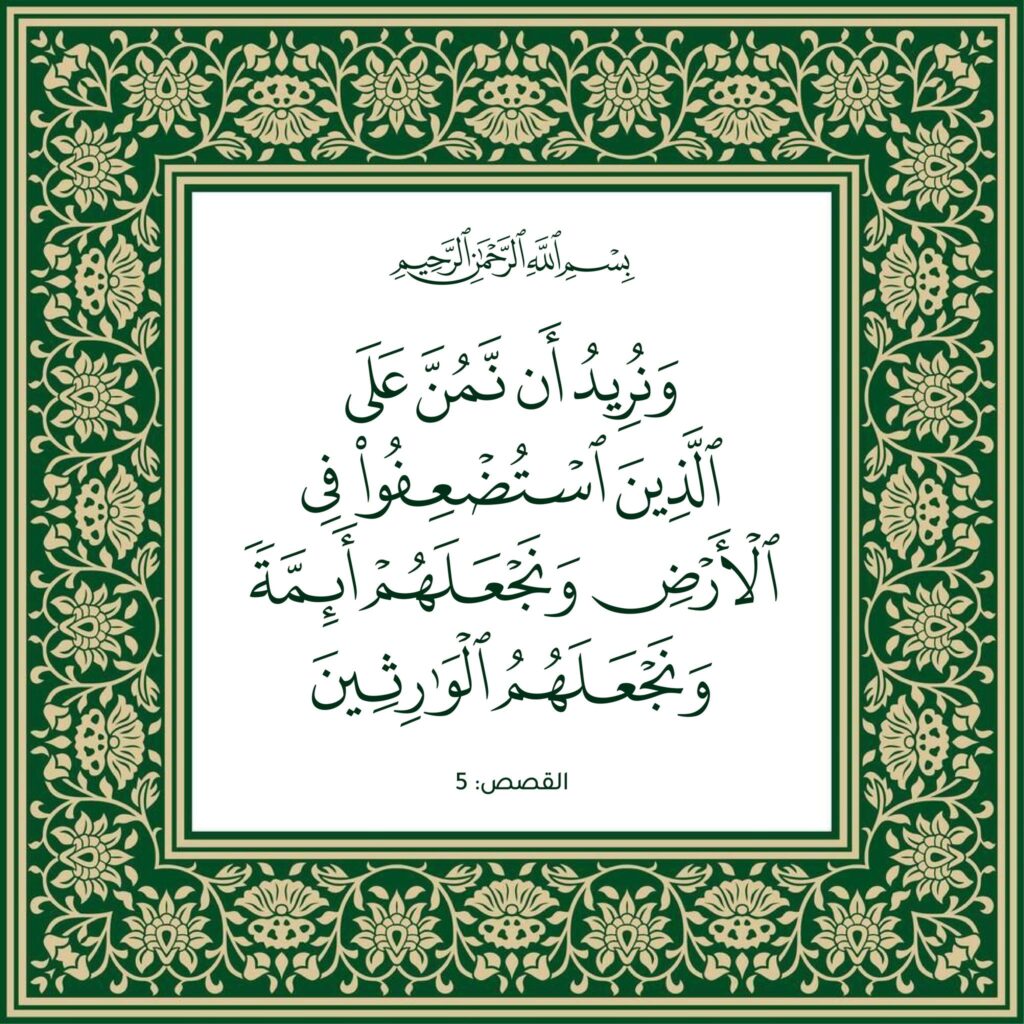 بِسْمِ ٱللَّهِ ٱلرَّحْمَٰنِ ٱلرَّحِيمِ
وَنُرِيدُ أَن نَّمُنَّ عَلَى
ٱلَّذِينَ ٱسْتُضْعِفُوا۟ فِي
ٱلْأَرْضِ وَنَجْعَلَهُمْ أَئِمَّةً
وَنَجْعَلَهُمُ ٱلْوَٰرِثِينَ
القصص: 5